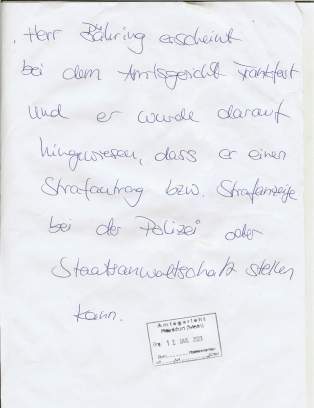 Herr Bähring erscheint
bei dem Amtsgericht Frankfurt
und er wurde darauf
hingewiesen, dass er einen
Strafantrag bzw. Strafanzeige
bei der Polizei oder
Staatsanwaltschaft stellen
kann.
Amtsgericht